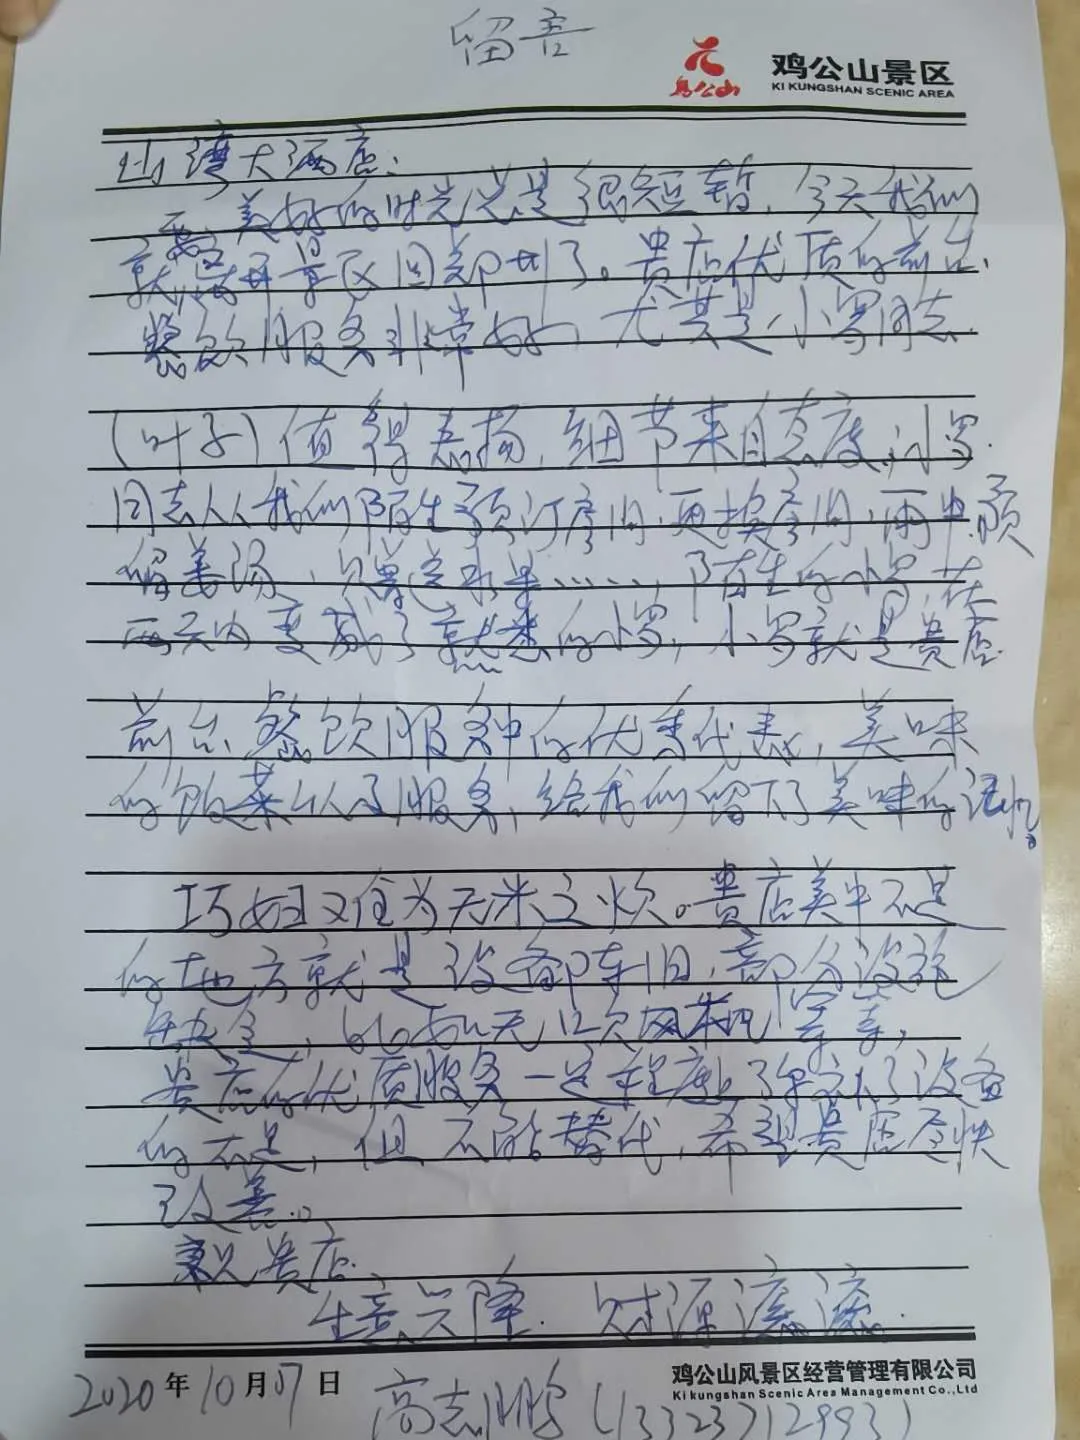 留言
元
鸡公山
鸡公山景区
KI KUNGSHAN SCENIC AREA
山湾大酒店:
美好的时光总是很短暂,今天我们
就要离开景区回郑州了。贵店优质的前台、
餐饮服务非常好,尤其是小罗同志
(叶子)值得表扬,细节来自态度,小罗
同志从我们陌生预订房间,更换房间,雨中预
留姜汤,赠送水果……,陌生的小罗,在
两天内变成了熟悉的小罗,小罗就是贵店
前台、餐饮服务中的优秀代表,美味
的饭菜以及服务,给我们留下了美味的记忆。
巧妇又难为无米之炊。贵店美中不足
的地方就是设备陈旧,部分设施
缺乏,比如无吹风机等等,
贵店的优质服务一定程度上弥补了设备
的不足,但不能替代,希望贵店尽快
改善。
祝贵店
生意兴隆 财源滚滚
2020年10月07日
高志鹏(13323712993)
鸡公山风景区经营管理有限公司
Ki kungshan Scenic Area Management Co.,Ltd